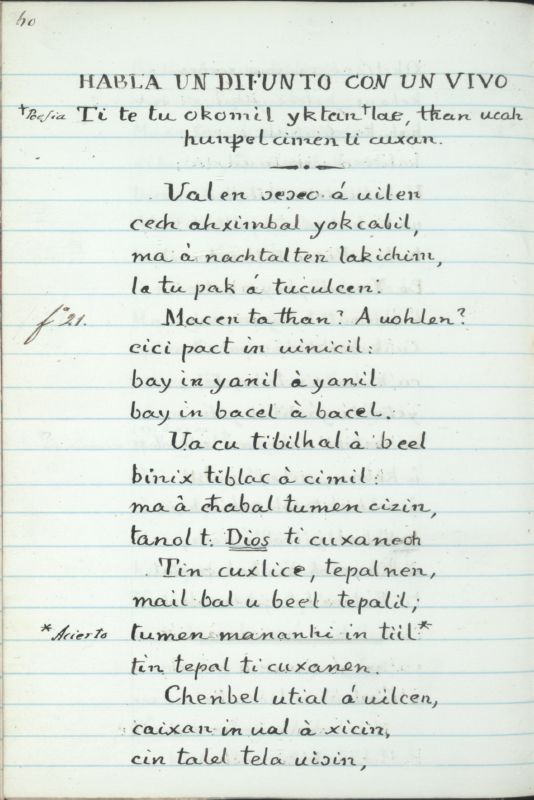 40
HABLA UN DIFUNTO CON UN VIVO
†Poesia Ti te tu okomil yktan †lae, than ucah
hunppel cimen ti cuxan.
Val en ɔeɔec á uilen
cech ahximbal yokcabil,
ma à nachtalten lakichim,
la tu pak á tuculcen:
fº 21. Macen ta than? A uohlen?
cici pact in uinicil:
bay in yanil à yanil
bay in bacel à bacel.
Ua cu tibilhal à beel
binix tiblac à cimil:
ma à chabal tumen cizin,
tanol t: Dios ti cuxanech
Tin cuxlice, tepalnen,
mail bal u beel tepalil;
*Acierto tumen mananhi in tiil*
tin tepal ti cuxanen.
Chenbel utial á uilcen,
caixan in ual à xicin,
cin talel tela uiɔin,